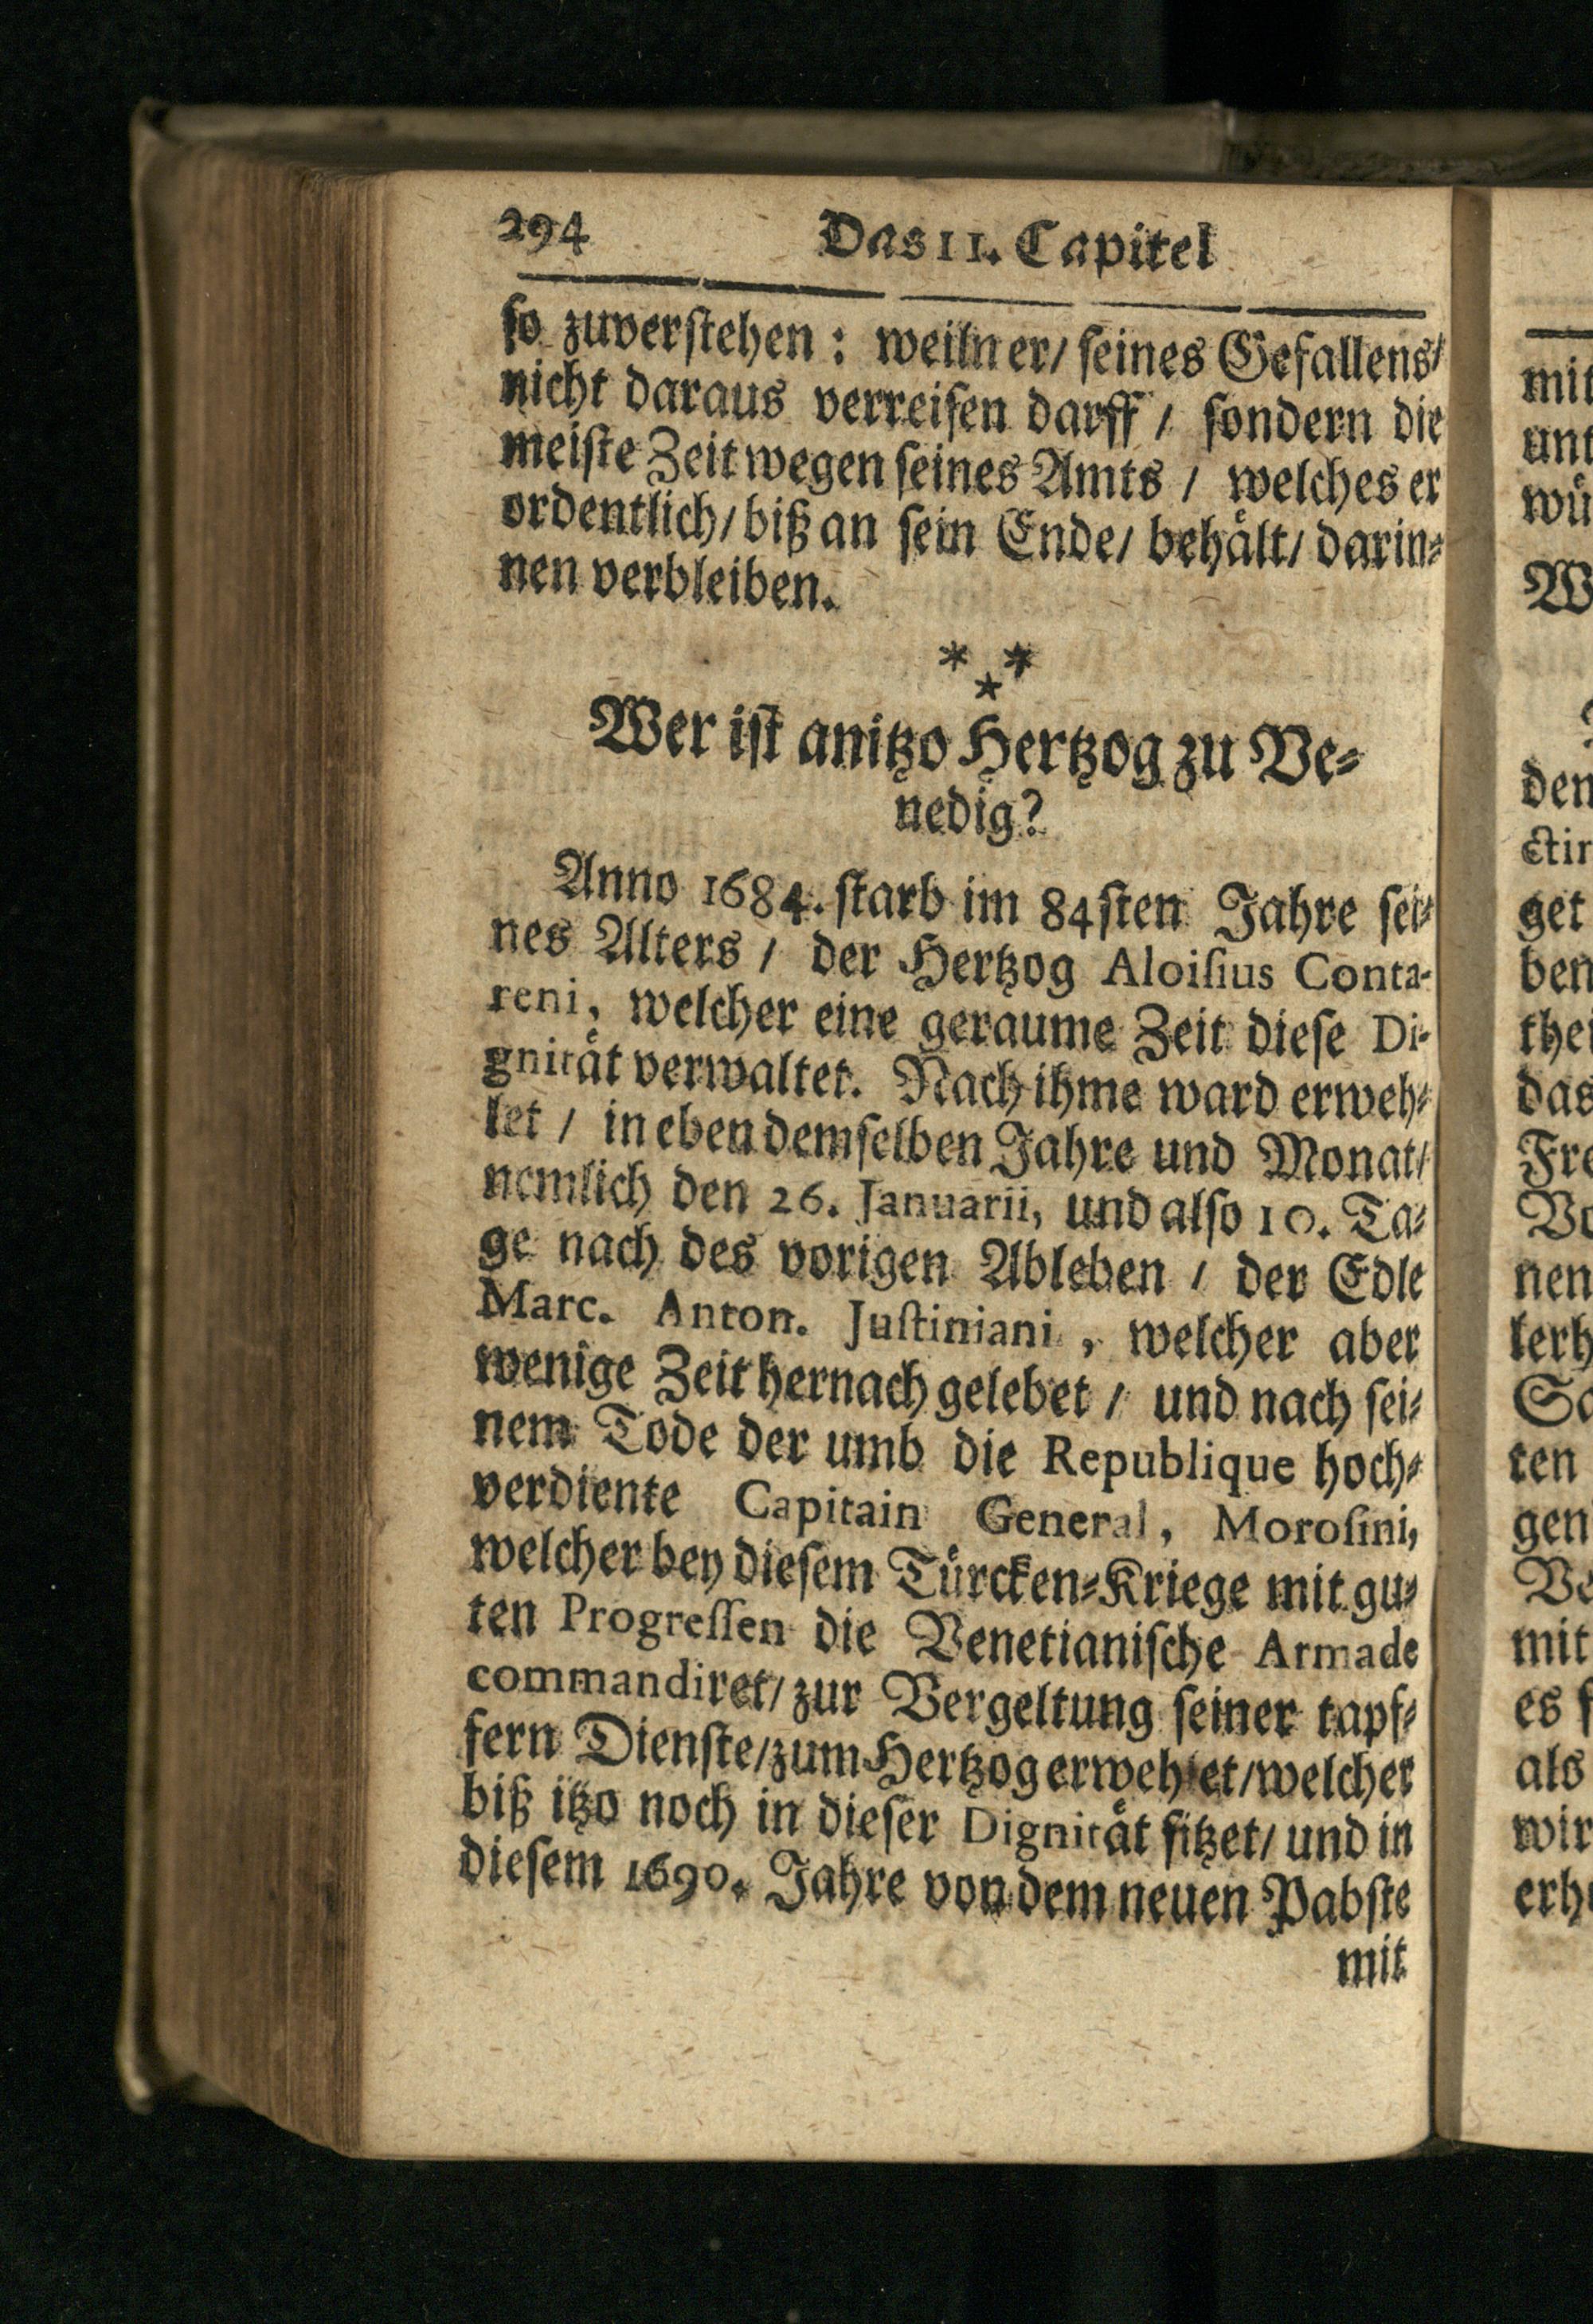 294 Das 11. Capitel
so zuverstehen: weiln er/ seines Gefallens/
nicht daraus verreisen darff / sondern die
meiste Zeit wegen seines Amts / welches er
ordentlich/ biß an sein Ende/ behält/ darin-
nen verbleiben.
* * *
Wer ist anitzo Hertzog zu Ve-
nedig?
Anno 1684. starb im 84sten Jahre sei-
nes Alters / der Hertzog Aloisius Conta-
reni, welcher eine geraume Zeit diese Di-
gnität verwaltet. Nach ihme ward erweh-
let / in eben demselben Jahre und Monat/
nemlich den 26. Januarii, und also 10. Ta-
ge nach des vorigen Ableben / der Edle
Marc. Anton. Justiniani, welcher aber
wenige Zeit hernach gelebet / und nach sei-
nem Tode der umb die Republique hoch-
verdiente Capitain General, Morosini,
welcher bey diesem Türcken-Kriege mit gu-
ten Progressen die Venetianische Armade
commandiret/ zur Vergeltung seiner tapf-
fern Dienste/ zum Hertzog erwehlet/ welcher
biß itzo noch in dieser Dignität sitzet/ und in
diesem 1690. Jahre von dem neuen Pabste
mit
mit
unt
wü
W
den
ctir
get
ben
thei
das
Fre
Vo
nen
lerh
Sa
ten
gen
Ve
mit
es
als
wir
erh